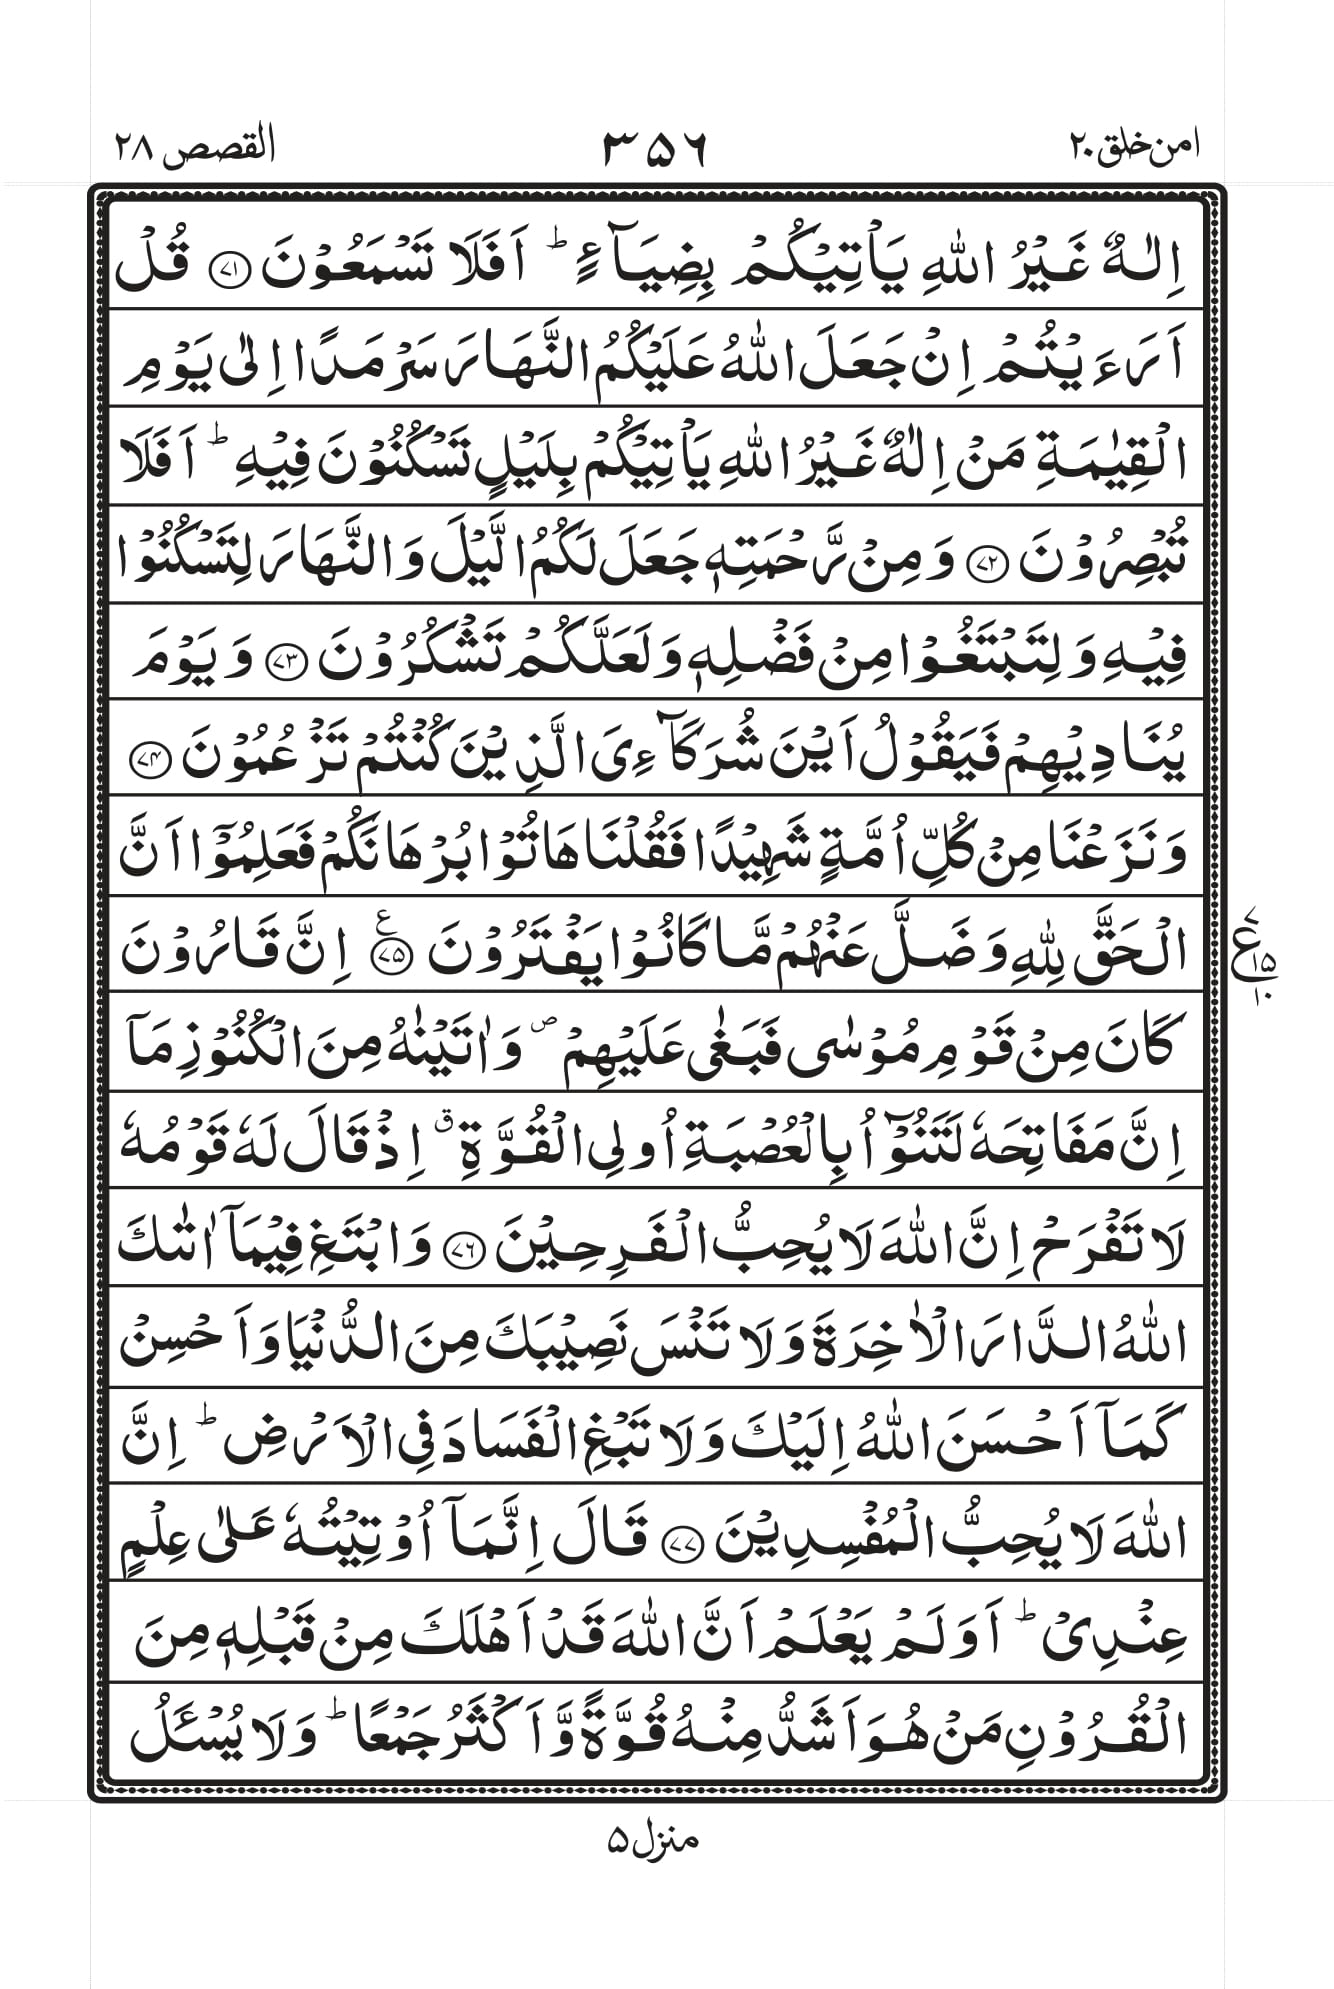 امن خلق ۲۰ ۳۵۶ القصص ۲۸
اِلٰـهٌ غَيْرُ اللّٰهِ يَاْتِيْكُمْ بِضِيَآءٍ ؕ اَفَلَا تَسْمَعُوْنَ ﴿۷۱﴾ قُلْ
اَرَءَيْتُمْ اِنْ جَعَلَ اللّٰهُ عَلَيْكُمُ النَّهَارَ سَرْمَدًا اِلٰى يَوْمِ
الْقِيٰمَةِ مَنْ اِلٰـهٌ غَيْرُ اللّٰهِ يَاْتِيْكُمْ بِلَيْلٍ تَسْكُنُوْنَ فِيْهِ ؕ اَفَلَا
تُبْصِرُوْنَ ﴿۷۲﴾ وَمِنْ رَّحْمَتِهٖ جَعَلَ لَكُمُ الَّيْلَ وَالنَّهَارَ لِتَسْكُنُوْا
فِيْهِ وَلِتَبْتَغُوْا مِنْ فَضْلِهٖ وَلَعَلَّكُمْ تَشْكُرُوْنَ ﴿۷۳﴾ وَيَوْمَ
يُنَادِيْهِمْ فَيَقُوْلُ اَيْنَ شُرَكَآءِىَ الَّذِيْنَ كُنْتُمْ تَزْعُمُوْنَ ﴿۷۴﴾
وَنَزَعْنَا مِنْ كُلِّ اُمَّةٍ شَهِيْدًا فَقُلْنَا هَاتُوْا بُرْهَانَكُمْ فَعَلِمُوْٓا اَنَّ
الْحَقَّ لِلّٰهِ وَضَلَّ عَنْهُمْ مَّا كَانُوْا يَفْتَرُوْنَ ﴿۷۵﴾ ع اِنَّ قَارُوْنَ
۷ ع ۱۵ ۱۰
كَانَ مِنْ قَوْمِ مُوْسٰى فَبَغٰى عَلَيْهِمْ ۪ وَاٰتَيْنٰهُ مِنَ الْكُنُوْزِ مَآ
اِنَّ مَفَاتِحَهٗ لَتَنُوْٓاُ بِالْعُصْبَةِ اُولِى الْقُوَّةِ ۗ اِذْ قَالَ لَهٗ قَوْمُهٗ
لَا تَفْرَحْ اِنَّ اللّٰهَ لَا يُحِبُّ الْفَرِحِيْنَ ﴿۷۶﴾ وَابْتَغِ فِيْمَآ اٰتٰٮكَ
اللّٰهُ الدَّارَ الْاٰخِرَةَ وَلَا تَنْسَ نَصِيْبَكَ مِنَ الدُّنْيَا وَاَحْسِنْ
كَمَآ اَحْسَنَ اللّٰهُ اِلَيْكَ وَلَا تَبْغِ الْفَسَادَ فِى الْاَرْضِ ؕ اِنَّ
اللّٰهَ لَا يُحِبُّ الْمُفْسِدِيْنَ ﴿۷۷﴾ قَالَ اِنَّمَآ اُوْتِيْتُهٗ عَلٰى عِلْمٍ
عِنْدِىْ ؕ اَوَلَمْ يَعْلَمْ اَنَّ اللّٰهَ قَدْ اَهْلَكَ مِنْ قَبْلِهٖ مِنَ
الْقُرُوْنِ مَنْ هُوَ اَشَدُّ مِنْهُ قُوَّةً وَّاَكْثَرُ جَمْعًا ؕ وَلَا يُسْــَٔلُ
منزل ۵